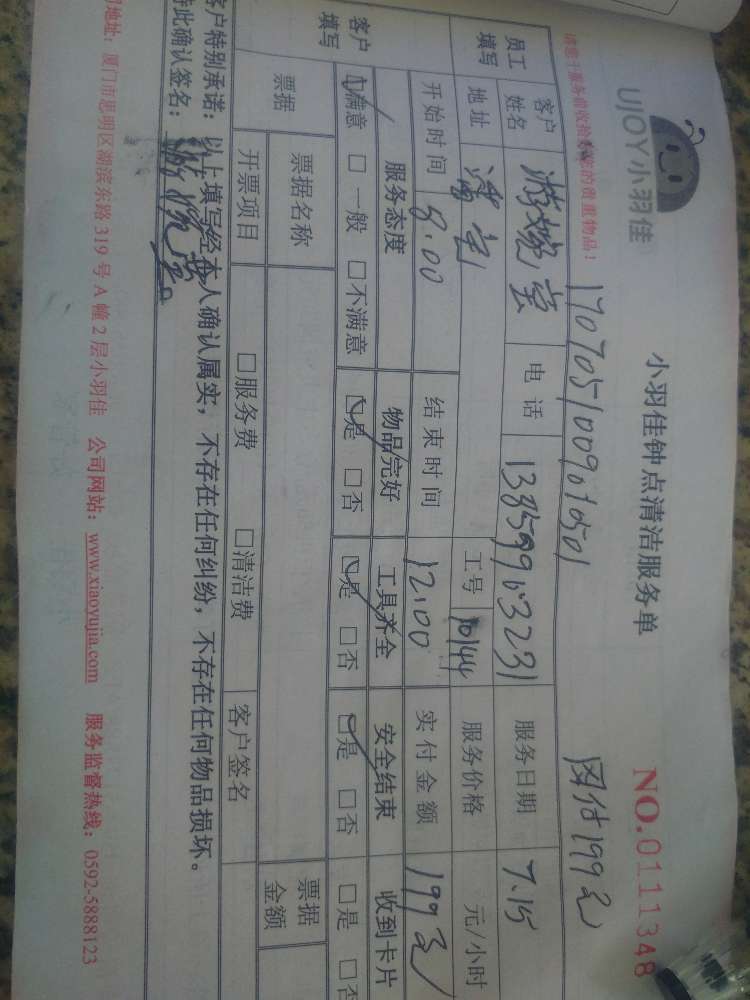 UJOY小羽佳
小羽佳钟点清洁服务单
NO.0111348
请您于服务前收拾好您的贵重物品!
网付199元
员工填写 客户姓名 游婉宝 电话 服务日期 7.15
地址 工号 10144 服务价格 元/小时
开始时间 8.00 结束时间 12.00 实付金额 199元
客户填写 服务态度 物品完好 工具齐全 安全结束 收到卡片
☑满意 □一般 □不满意 ☑是 □否 ☑是 □否 ☑是 □否 □是 □否
票据 票据名称 票据金额
开票项目 □服务费 □清洁费 客户签名
客户特别承诺:以上填写经本人确认属实,不存在任何纠纷,不存在任何物品损坏。
特此确认签名:
地址:厦门市思明区湖滨东路319号A幢2层小羽佳 公司网站:www.xiaoyujia.com 服务监督热线:0592-5888123